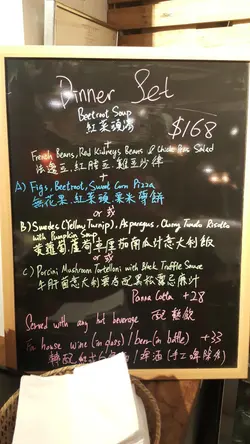 Dinner Set
Beetroot Soup
紅菜頭湯
$168
+
French Beans, Red Kidneys Beans & Chick Peas Salad
法邊豆, 紅腰豆, 雞豆沙律
+
A) Figs, Beetroot, Sweet Corn Pizza
無花果, 紅菜頭, 粟米薄餅
or 或
B) Swedes (Yellow Turnip), Asparagus, Cherry Tomato Risotto
with Pumpkin Sauce
黃蘿蔔, 蘆筍, 車厘茄南瓜汁意大利飯
or 或
C) Porcini Mushroom Tortelloni with Black Truffle Sauce
牛肝菌意大利雲吞配黑松露忌廉汁
Panna Cotta +28
Served with any hot beverage 配熱飲
For house wine (in glass) / beer (in bottle) +33
轉配 / 啤酒 (手工啤除外)